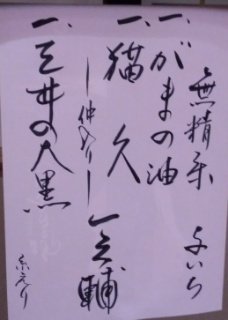 無精床 与いち
一、がまの油
一、猫久
―仲入り―
一之輔
一、三井の大黒